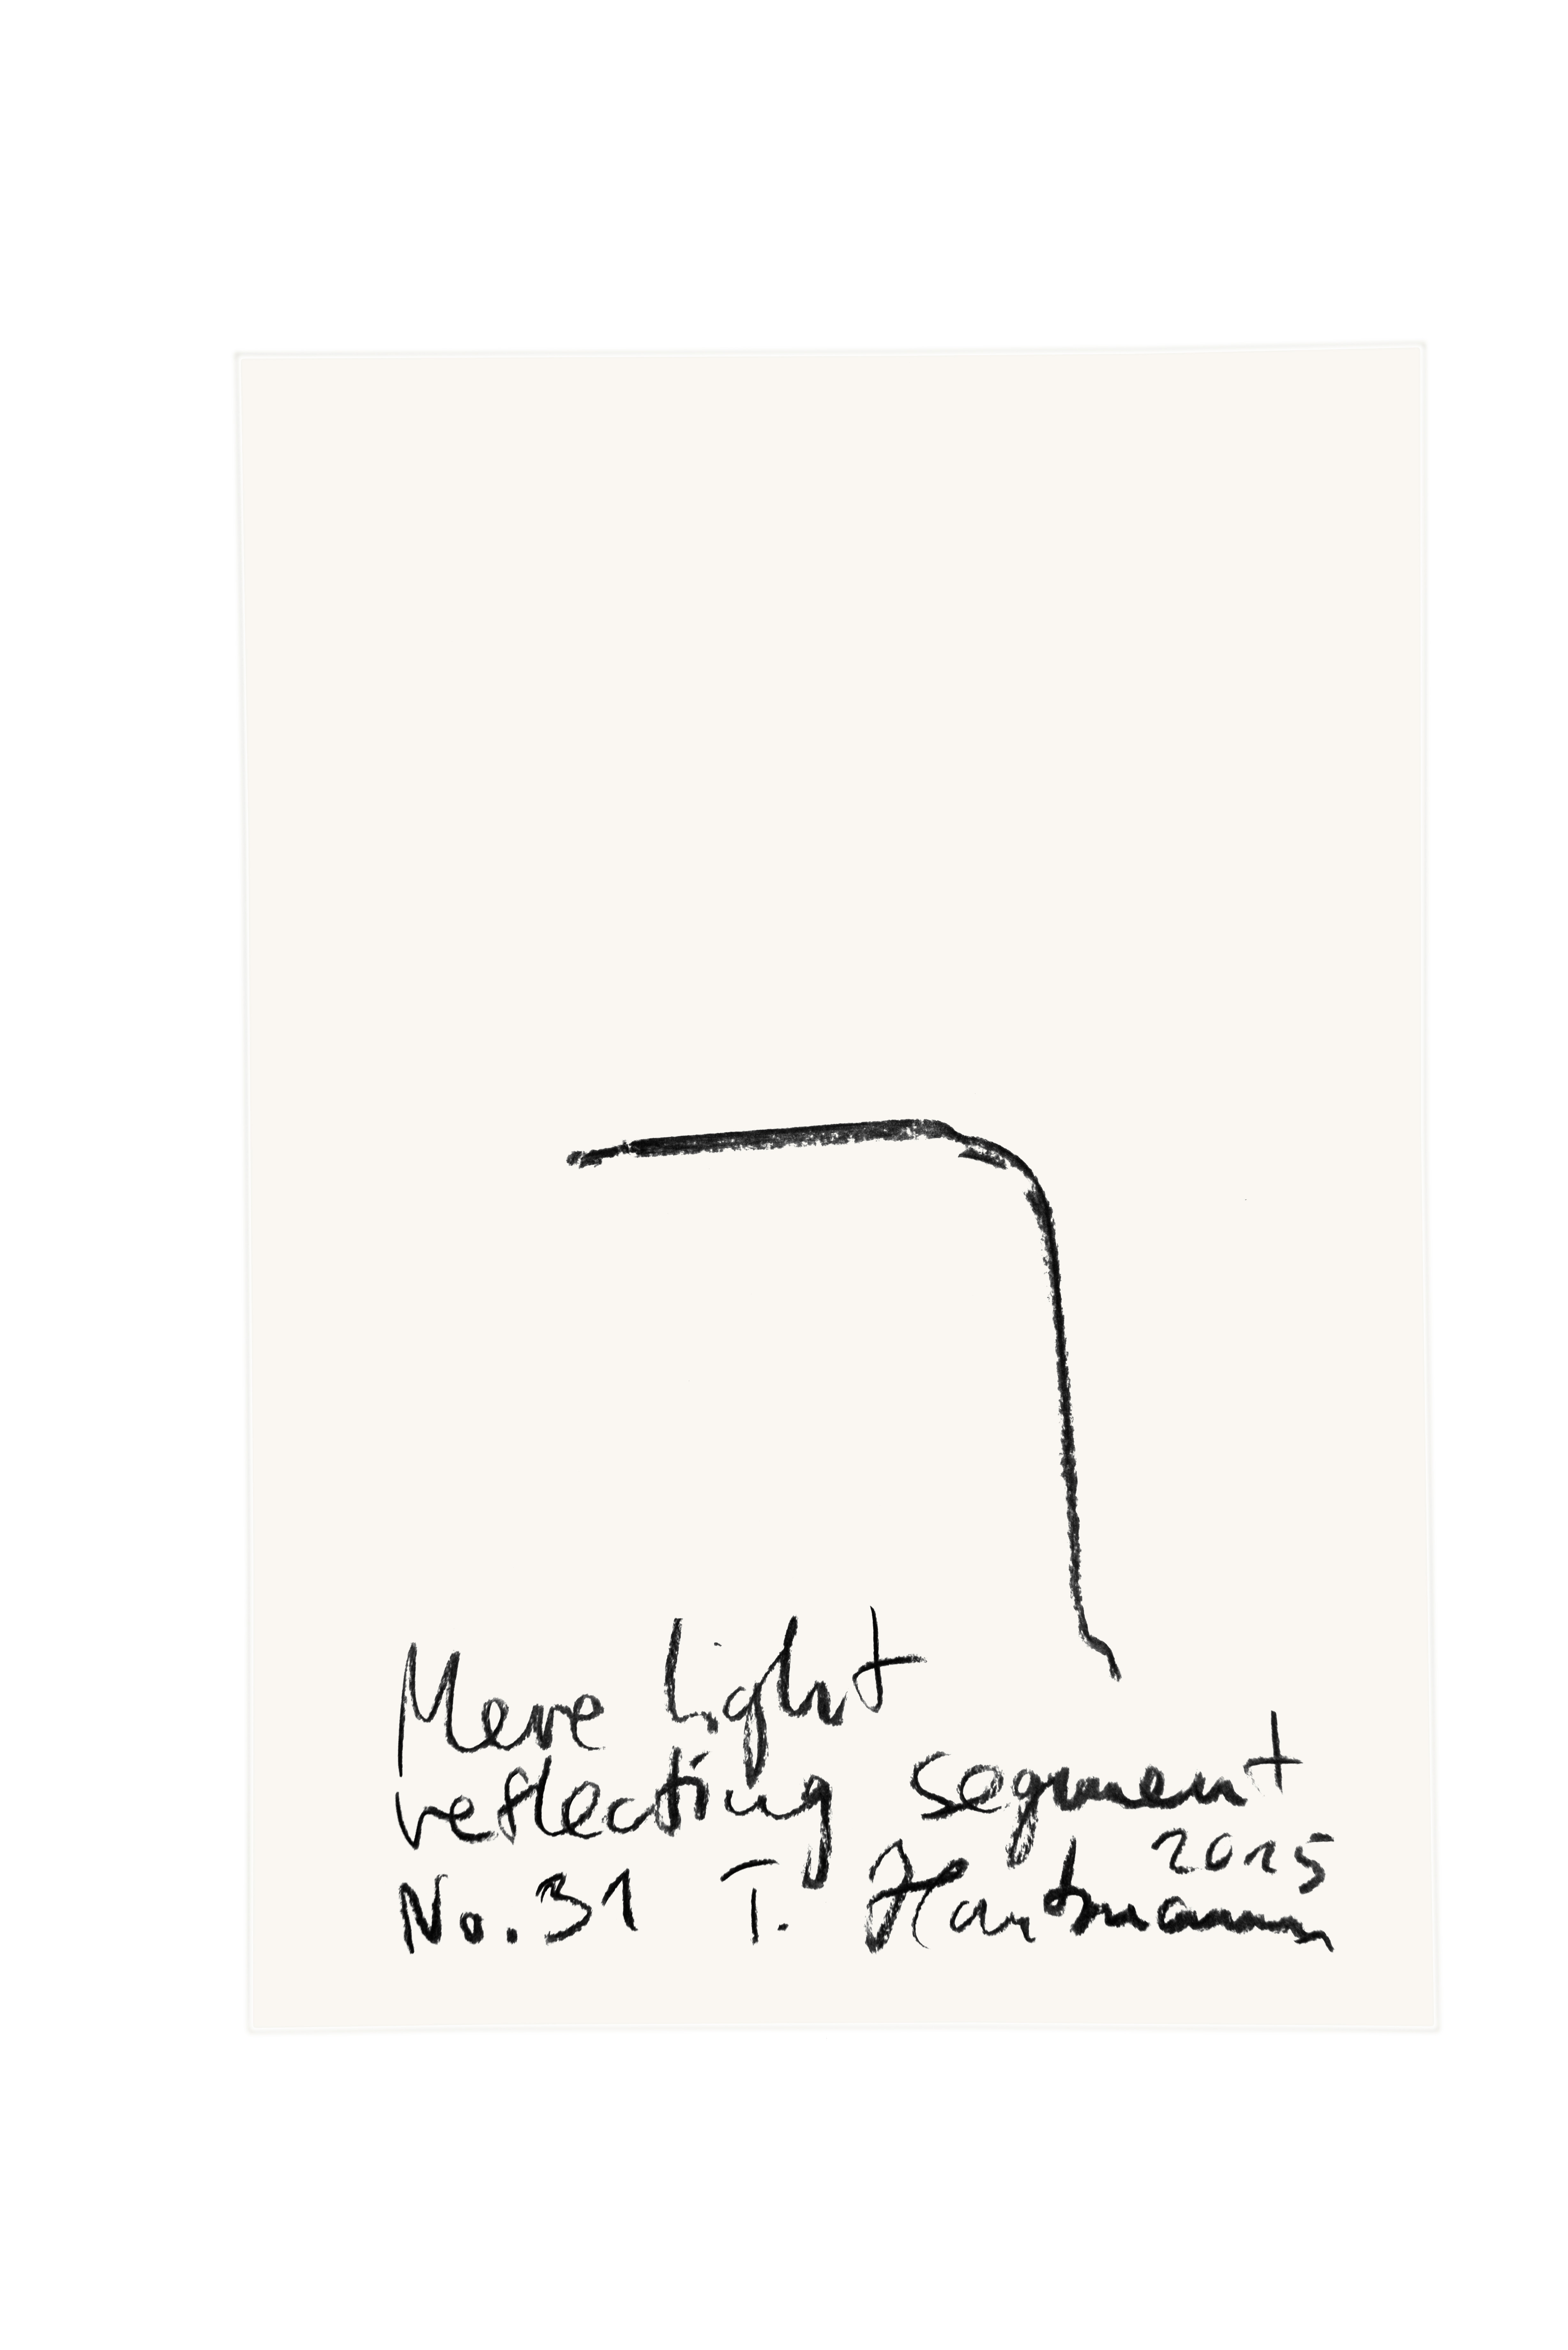 Mere light
reflecting segment
2015
No. 31 T. Hartmann